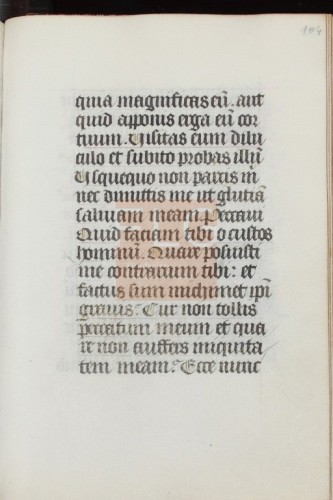 104
quia magnificas eū. aut
quid apponis erga eū cor
tuum. Uisitas eum dilu
culo et subito probas illū
Usquequo non parcis m
nec dimittis me ut glutiā
saliuam meam. Peccaui
Quid faciam tibi o custos
hominū. Quare posuisti
me contrarium tibi: et
factus sum michimet ipi
grauis. Cur non tollis
peccatum meum et qua
re non auffers iniquita
tem meam. Ecce nunc